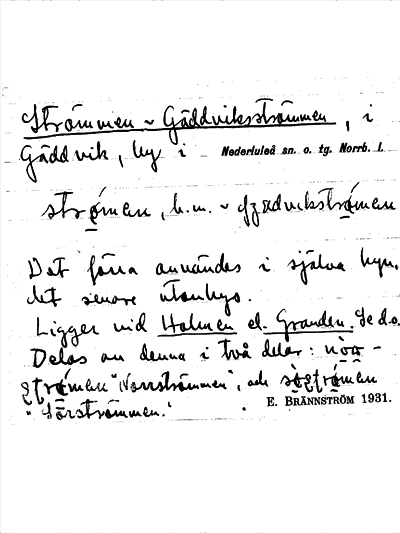 Strömmen ~ Gäddviksströmmen, i
Gäddvik, by i Nederluleå sn. o. tg. Norrb. l.
strǫ́men, b.m. ~ jädvikstrǫ́men
Det förra användes i själva byn,
det senare utanbys.
Ligger vid Holmen el. Granden. Se d.o.
Delas av denna i två delar: nòṛ-
ștrǫ́men "Norrströmmen", och sǫ̀ștrǫ́men
"Sörströmmen."
E. BRÄNNSTRÖM 1931.